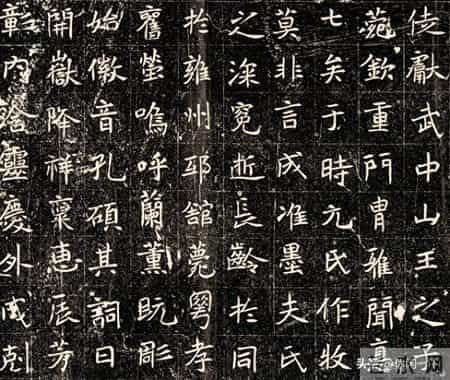 獻武中山王之子
菀欽重門胄雅聞真
七矣于時元氏作牧
莫非言成准墨夫氏
之深寃逝長齡扵同
扵雍州邳舘薨粤孝
舊塋嗚呼蘭薰玩彫
始徽音孔碩其詞曰
開嶽降祥稟惠辰芳
彰內靈慶外成剋